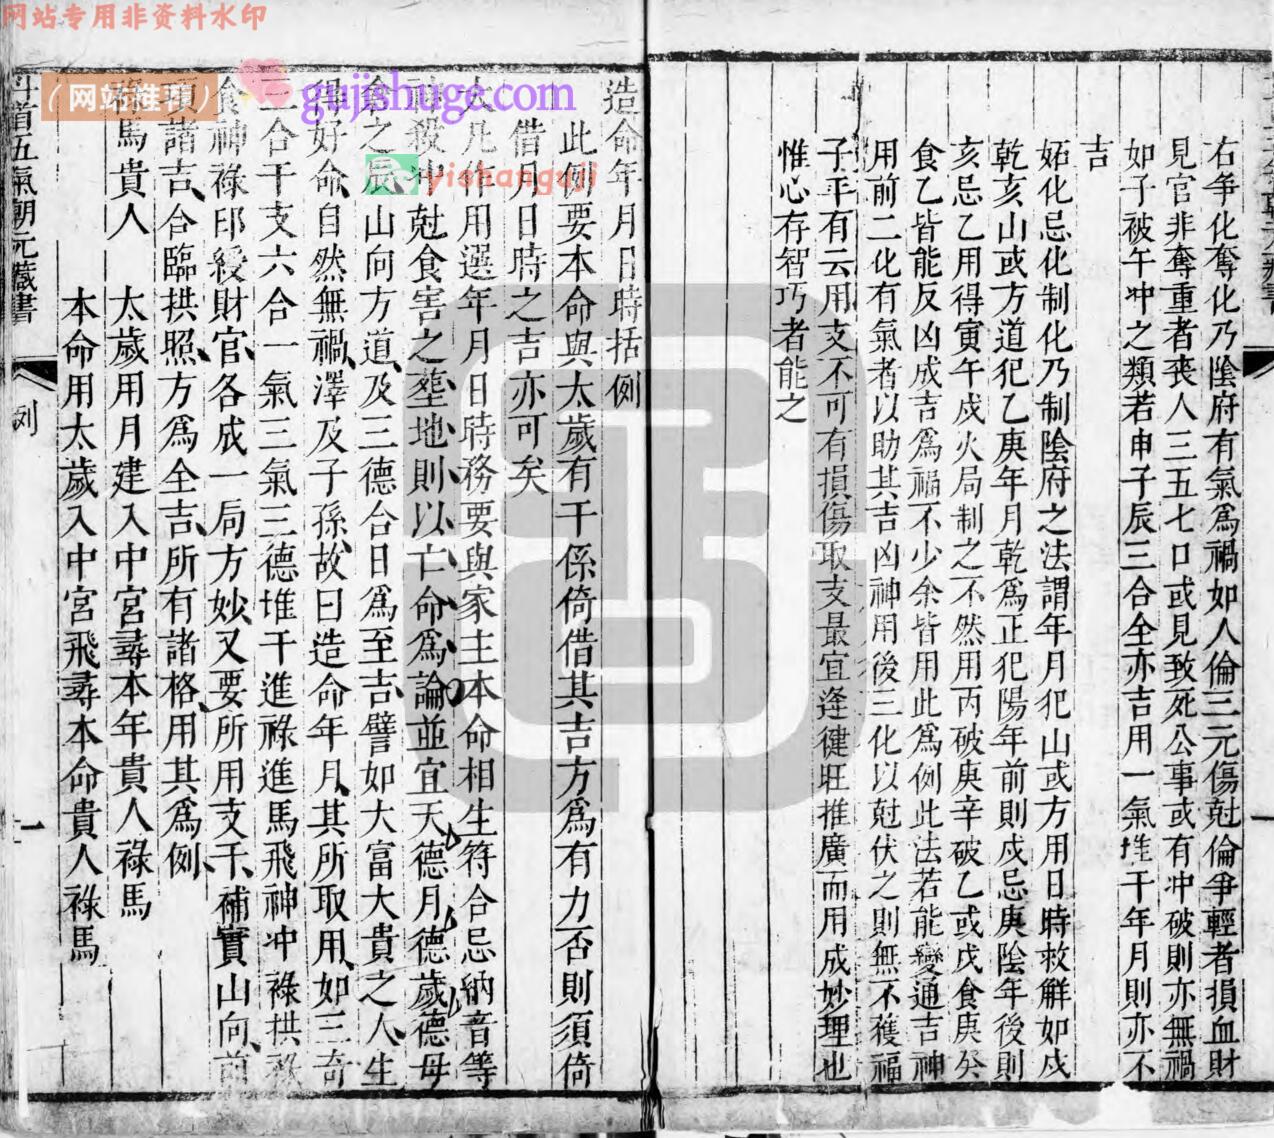 网站专用非资料水印
(网站推荐)
gujishuge.com
yishanguji
右爭化奪化乃陰府有氣爲禍如人倫三元傷尅倫爭輕者損血財
見官非奪重者喪人三五七口或見致死公事或有冲破則亦無禍
如子被午冲之類若申子辰三合全亦吉用一氣堆干年月則亦不
吉
妬化忌化制化乃制陰府之法謂年月犯山或方用日時救解如戍
乾亥山或方道犯乙庚年月乾爲正犯陽年前則戍忌庚陰年後則
亥忌乙用得寅午戍火局制之不然用丙破庚辛破乙或戊食庚癸
食乙皆能反凶成吉爲福不少余皆用此爲例此法若能變通吉神
用前二化有氣者以助其吉凶神用後三化以尅伏之則無不獲福
子平有云用支不可有損傷取支最宜逢健旺推廣而用成妙理也
惟心存智巧者能之
造命年月日時括例
此例要本命與太歲有干係倚借其吉方爲有力否則須倚
借月日時之吉亦可矣
大凡作用選年月日時務要與家主本命相生符合忌納音等
神殺冲尅食害之塟地則以亡命爲論並宜天德月德歲德母
倉之辰山向方道及三德合日爲至吉譬如大富大貴之人生
得好命自然無禍澤及子孫故曰造命年月其所取用如三奇
三合干支六合一氣三氣三德堆干進祿進馬飛神冲祿拱
食神祿印綬財官各成一局方妙又要所用支干補實山向前
項諸吉合臨拱照方爲全吉所有諸格用其爲例
馬貴人 太歲用月建入中宮尋本年貴人祿馬
本命用太歲入中宮飛尋本命貴人祿馬
首五氣朝元藏書